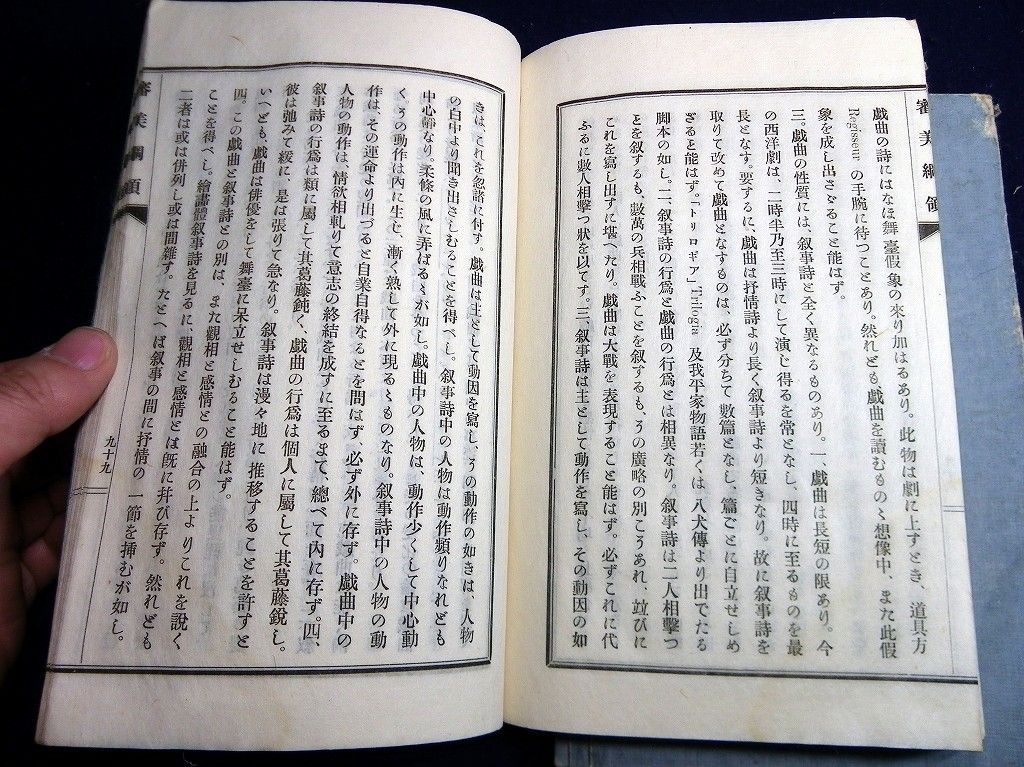 審美綱領
戯曲の詩にはなほ舞臺假象の來り加はるあり。此物は劇に上すとき、道具方
Regisseur の手腕に待つことあり。然れども、戯曲を讀むものゝ想像中、また此假
象を成し出さゞること能はず。
三、戯曲の性質には、叙事詩と全く異なるものあり。一、戯曲は長短の限あり。今
の西洋劇は、二時半乃至三時にして演じ得るを常となし、四時に至るものを最
長となす。要するに、戯曲は抒情詩より長く叙事詩より短きなり。故に叙事詩を
取りて改めて戯曲となすものは、必ず分ちて數篇となし、篇ごとに自立せしめ
ざると能はず。「トリロギア」Trilogia 及我平家物語若くは八犬傳より出でたる
脚本の如し。二、叙事詩の行爲と戯曲の行爲とは相異なり。叙事詩は二人相擊つ
とを叙するも、數萬の兵相戰ふことを叙するも、その廣略の別こそあれ、竝びに
これを寫し出すに堪へたり。戯曲は大戰を表現すること能はず。必ずこれに代
ふるに數人相擊つ狀を以てす。三、叙事詩は主として動作を寫し、その動因の如
きは、これを忽諸に付す。戯曲は主として動因を寫し、その動作の如きは、人物
の白中より聞き出さしむることを得べし。叙事詩中の人物は動作頗りなれども
中心靜なり。柔條の風に弄ばるゝが如し。戯曲中の人物は、動作少くして中心動
く。その動作は內に生じ、漸く熟して外に現るゝものなり。叙事詩中の人物の動
作は、その運命より出づると自業自得なるとを問はず、必ず外に存ず。戯曲中の
人物の動作は、情欲相軋りて意志の終結を成すに至るまて、總べて內に存ず。四、
叙事詩の行爲は類に屬して其葛藤鈍く、戯曲の行爲は個人に屬して其葛藤銳し。
彼は弛みて緩に、是は張りて急なり。叙事詩は漫々地に推移することを許すと
いへども、戯曲は俳優をして舞臺に呆立せしむること能はず。
四。この戯曲と叙事詩との別は、また觀相と感情との融合の上よりこれを說く
ことを得べし。繪畵體叙事詩を見るに、觀相と感情とは旣に幷び存ず。然れども
二者は或は併列し或は間雜す。たとへば叙事の間に抒情の一節を揷むが如し。
審美綱領
九十九